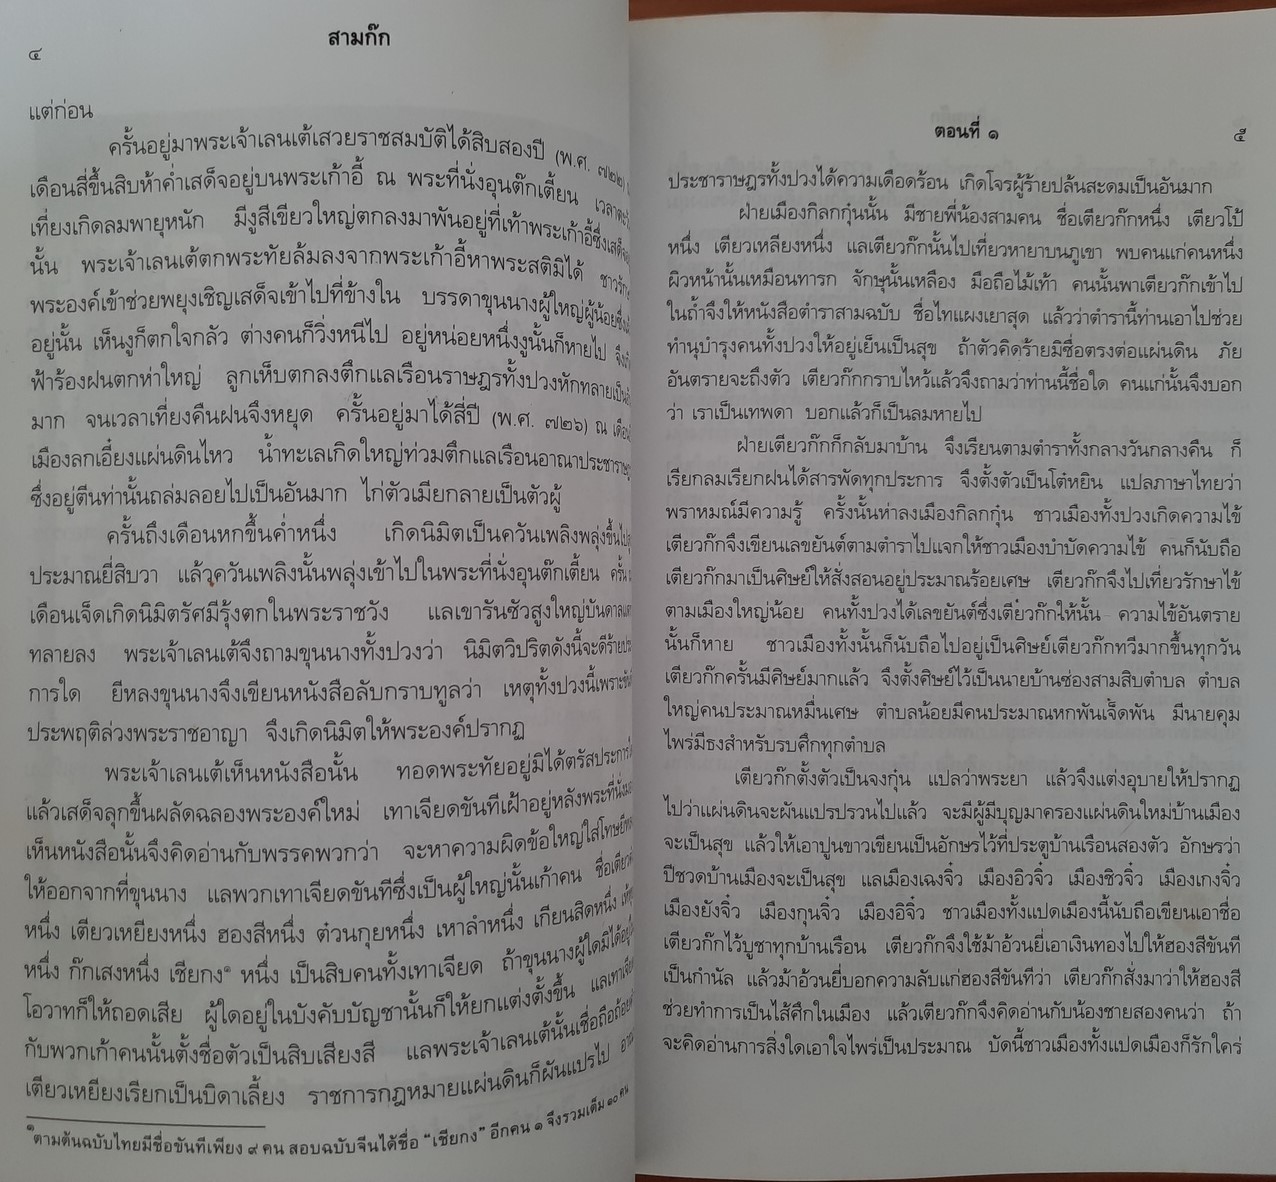 ๔
สามก๊ก
แต่ก่อน
ครั้นอยู่มาพระเจ้าเลนเต้เสวยราชสมบัติได้สิบสองปี (พ.ศ. ๗๒๒)
เดือนสี่ขึ้นสิบห้าค่ำเสด็จอยู่บนพระเก้าอี้ ณ พระที่นั่งอุนต๊กเตี้ยน
เที่ยงเกิดลมพายุหนัก มีงูสีเขียวใหญ่ตกลงมาพันอยู่ที่เท้าพระเก้าอี้ซึ่งเสด็จอยู่
นั้น พระเจ้าเลนเต้ตกพระทัยล้มลงจากพระเก้าอี้หาพระสติมิได้
พระองค์เข้าช่วยพยุงเชิญเสด็จเข้าไปที่ข้างใน บรรดาขุนนางผู้ใหญ่ผู้น้อยซึ่ง
อยู่นั้น เห็นงูก็ตกใจกลัว ต่างคนก็วิ่งหนีไป อยู่หน่อยหนึ่งงูนั้นก็หายไป
ฟ้าร้องฝนตกห่าใหญ่ ลูกเห็บตกลงตึกแลเรือนราษฎรทั้งปวงหักทลายเป็นอัน
มาก จนเวลาเที่ยงคืนฝนจึงหยุด ครั้นอยู่มาได้สี่ปี (พ.ศ. ๗๒๖) ณ
เมืองลกเอี๋ยงแผ่นดินไหว น้ำทะเลเกิดใหญ่ท่วมตึกแลเรือนอาณาประชาราษฎร
ซึ่งอยู่ตีนท่านั้นถล่มลอยไปเป็นอันมาก ไก่ตัวเมียกลายเป็นตัวผู้
ครั้นถึงเดือนหกขึ้นค่ำหนึ่ง เกิดนิมิตเป็นควันเพลิงพลุ่งขึ้นไป
ประมาณยี่สิบวา แล้วควันเพลิงนั้นพลุ่งเข้าไปในพระที่นั่งอุนต๊กเตี้ยน
เดือนเจ็ดเกิดนิมิตรัศมีรุ้งตกในพระราชวัง แลเขารันซัวสูงใหญ่บันดาลแตก
ทลายลง พระเจ้าเลนเต้จึงถามขุนนางทั้งปวงว่า นิมิตวิปริตดังนี้จะดีร้าย
การใด ยีหลงขุนนางจึงเขียนหนังสือลับกราบทูลว่า เหตุทั้งปวงนี้เพราะขันที
ประพฤติล่วงพระราชอาญา จึงเกิดนิมิตให้พระองค์ปรากฏ
พระเจ้าเลนเต้เห็นหนังสือนั้น ทอดพระทัยอยู่มิได้ตรัสประการใด
แล้วเสด็จลุกขึ้นผลัดฉลองพระองค์ใหม่ เทาเจียดขันทีเฝ้าอยู่หลังพระที่นั่ง
เห็นหนังสือนั้นจึงคิดอ่านกับพรรคพวกว่า จะหาความผิดข้อใหญ่ใส่โทษ
ให้ออกจากที่ขุนนาง แลพวกเทาเจียดขันทีซึ่งเป็นผู้ใหญ่นั้นเก้าคน
หนึ่ง เตียวเหยียงหนึ่ง ฮองสีหนึ่ง ต๋วนกุยหนึ่ง เหาลำหนึ่ง เกียนสิดหนึ่ง
หนึ่ง ก๊กเสงหนึ่ง เซียกง๑ หนึ่ง เป็นสิบคนทั้งเทาเจียด ถ้าขุนนางผู้ใดมิได้อยู่ใน
โอวาทก็ให้ถอดเสีย ผู้ใดอยู่ในบังคับบัญชานั้นก็ให้ยกแต่งตั้งขึ้น แลเทาเจียด
กับพวกเก้าคนนั้นตั้งชื่อตัวเป็นสิบเสียงสี แลพระเจ้าเลนเต้นั้นเชื่อถือถ้อยคำ
เตียวเหยียงเรียกเป็นบิดาเลี้ยง ราชการกฎหมายแผ่นดินก็ผันแปรไป
๑ตามต้นฉบับไทยมีชื่อขันทีเพียง ๙ คน สอบฉบับจีนได้ชื่อ “เซียกง” อีกคน ๑ จึงรวมเต็ม ๑๐ คน
ตอนที่ ๑
๕
ประชาราษฎรทั้งปวงได้ความเดือดร้อน เกิดโจรผู้ร้ายปล้นสะดมเป็นอันมาก
ฝ่ายเมืองกิลกกุ๋นนั้น มีชายพี่น้องสามคน ชื่อเตียวก๊กหนึ่ง เตียวโป้
หนึ่ง เตียวเหลียงหนึ่ง แลเตียวก๊กนั้นไปเที่ยวหายาบนภูเขา พบคนแก่คนหนึ่ง
ผิวหน้านั้นเหมือนทารก จักษุนั้นเหลือง มือถือไม้เท้า คนนั้นพาเตียวก๊กเข้าไป
ในถ้ำจึงให้หนังสือตำราสามฉบับ ชื่อไทแผงเยาสุด แล้วว่าตำรานี้ท่านเอาไปช่วย
ทำนุบำรุงคนทั้งปวงให้อยู่เย็นเป็นสุข ถ้าตัวคิดร้ายมิซื่อตรงต่อแผ่นดิน ภัย
อันตรายจะถึงตัว เตียวก๊กกราบไหว้แล้วจึงถามว่าท่านนี้ชื่อใด คนแก่นั้นจึงบอก
ว่า เราเป็นเทพดา บอกแล้วก็เป็นลมหายไป
ฝ่ายเตียวก๊กก็กลับมาบ้าน จึงเรียนตามตำราทั้งกลางวันกลางคืน ก็
เรียกลมเรียกฝนได้สารพัดทุกประการ จึงตั้งตัวเป็นโต๋หยิน แปลภาษาไทยว่า
พราหมณ์มีความรู้ ครั้งนั้นห่าลงเมืองกิลกกุ๋น ชาวเมืองทั้งปวงเกิดความไข้
เตียวก๊กจึงเขียนเลขยันต์ตามตำราไปแจกให้ชาวเมืองบำบัดความไข้ คนก็นับถือ
เตียวก๊กมาเป็นศิษย์ให้สั่งสอนอยู่ประมาณร้อยเศษ เตียวก๊กจึงไปเที่ยวรักษาไข้
ตามเมืองใหญ่น้อย คนทั้งปวงได้เลขยันต์ซึ่งเตียวก๊กให้นั้น ความไข้อันตราย
นั้นก็หาย ชาวเมืองทั้งนั้นก็นับถือไปอยู่เป็นศิษย์เตียวก๊กทวีมากขึ้นทุกวัน
เตียวก๊กครั้นมีศิษย์มากแล้ว จึงตั้งศิษย์ไว้เป็นนายบ้านซ่องสามสิบตำบล ตำบล
ใหญ่คนประมาณหมื่นเศษ ตำบลน้อยมีคนประมาณหกพันเจ็ดพัน มีนายคุม
ไพร่มีธงสำหรับรบศึกทุกตำบล
เตียวก๊กตั้งตัวเป็นจงกุ๋น แปลว่าพระยา แล้วจึงแต่งอุบายให้ปรากฏ
ไปว่าแผ่นดินจะผันแปรปรวนไปแล้ว จะมีผู้มีบุญมาครองแผ่นดินใหม่บ้านเมือง
จะเป็นสุข แล้วให้เอาปูนขาวเขียนเป็นอักษรไว้ที่ประตูบ้านเรือนสองตัว อักษรว่า
ปีชวดบ้านเมืองจะเป็นสุข แลเมืองเฉงจิ๋ว เมืองอิวจิ๋ว เมืองชิวจิ๋ว เมืองเกงจิ๋ว
เมืองยังจิ๋ว เมืองกุนจิ๋ว เมืองอิจิ๋ว ชาวเมืองทั้งแปดเมืองนี้นับถือเขียนเอาชื่อ
เตียวก๊กไว้บูชาทุกบ้านเรือน เตียวก๊กจึงใช้ม้าอ้วนยี่เอาเงินทองไปให้ฮองสีขันที
เป็นกำนัล แล้วม้าอ้วนยี่บอกความลับแก่ฮองสีขันทีว่า เตียวก๊กสั่งมาว่าให้ฮองสี
ช่วยทำการเป็นไส้ศึกในเมือง แล้วเตียวก๊กจึงคิดอ่านกับน้องชายสองคนว่า ถ้า
จะคิดอ่านการสิ่งใดเอาใจไพร่เป็นประมาณ บัดนี้ชาวเมืองทั้งแปดเมืองก็รักใคร่